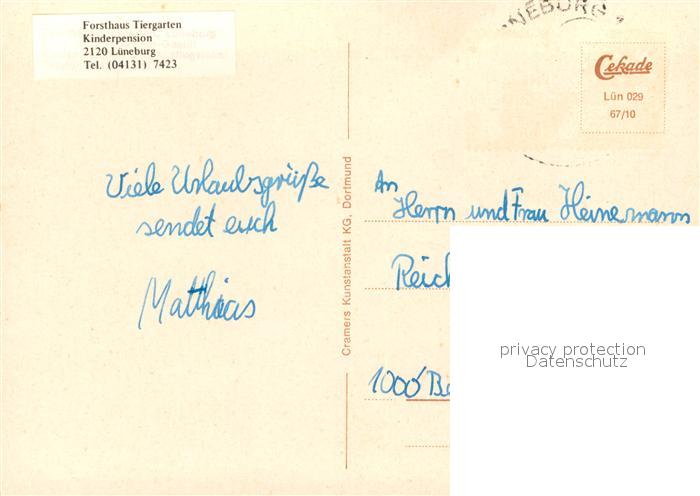 Forsthaus Tiergarten
Kinderpension
2120 Lüneburg
Tel. (04131) 7423
NEBURG
Cekade
Lün 029
67/10
Viele Urlaubsgrüße
sendet euch
Matthias
Cramers Kunstanstalt KG, Dortmund
An
Herrn und Frau Heinemann
Reich
1000 Be
privacy protection
Datenschutz